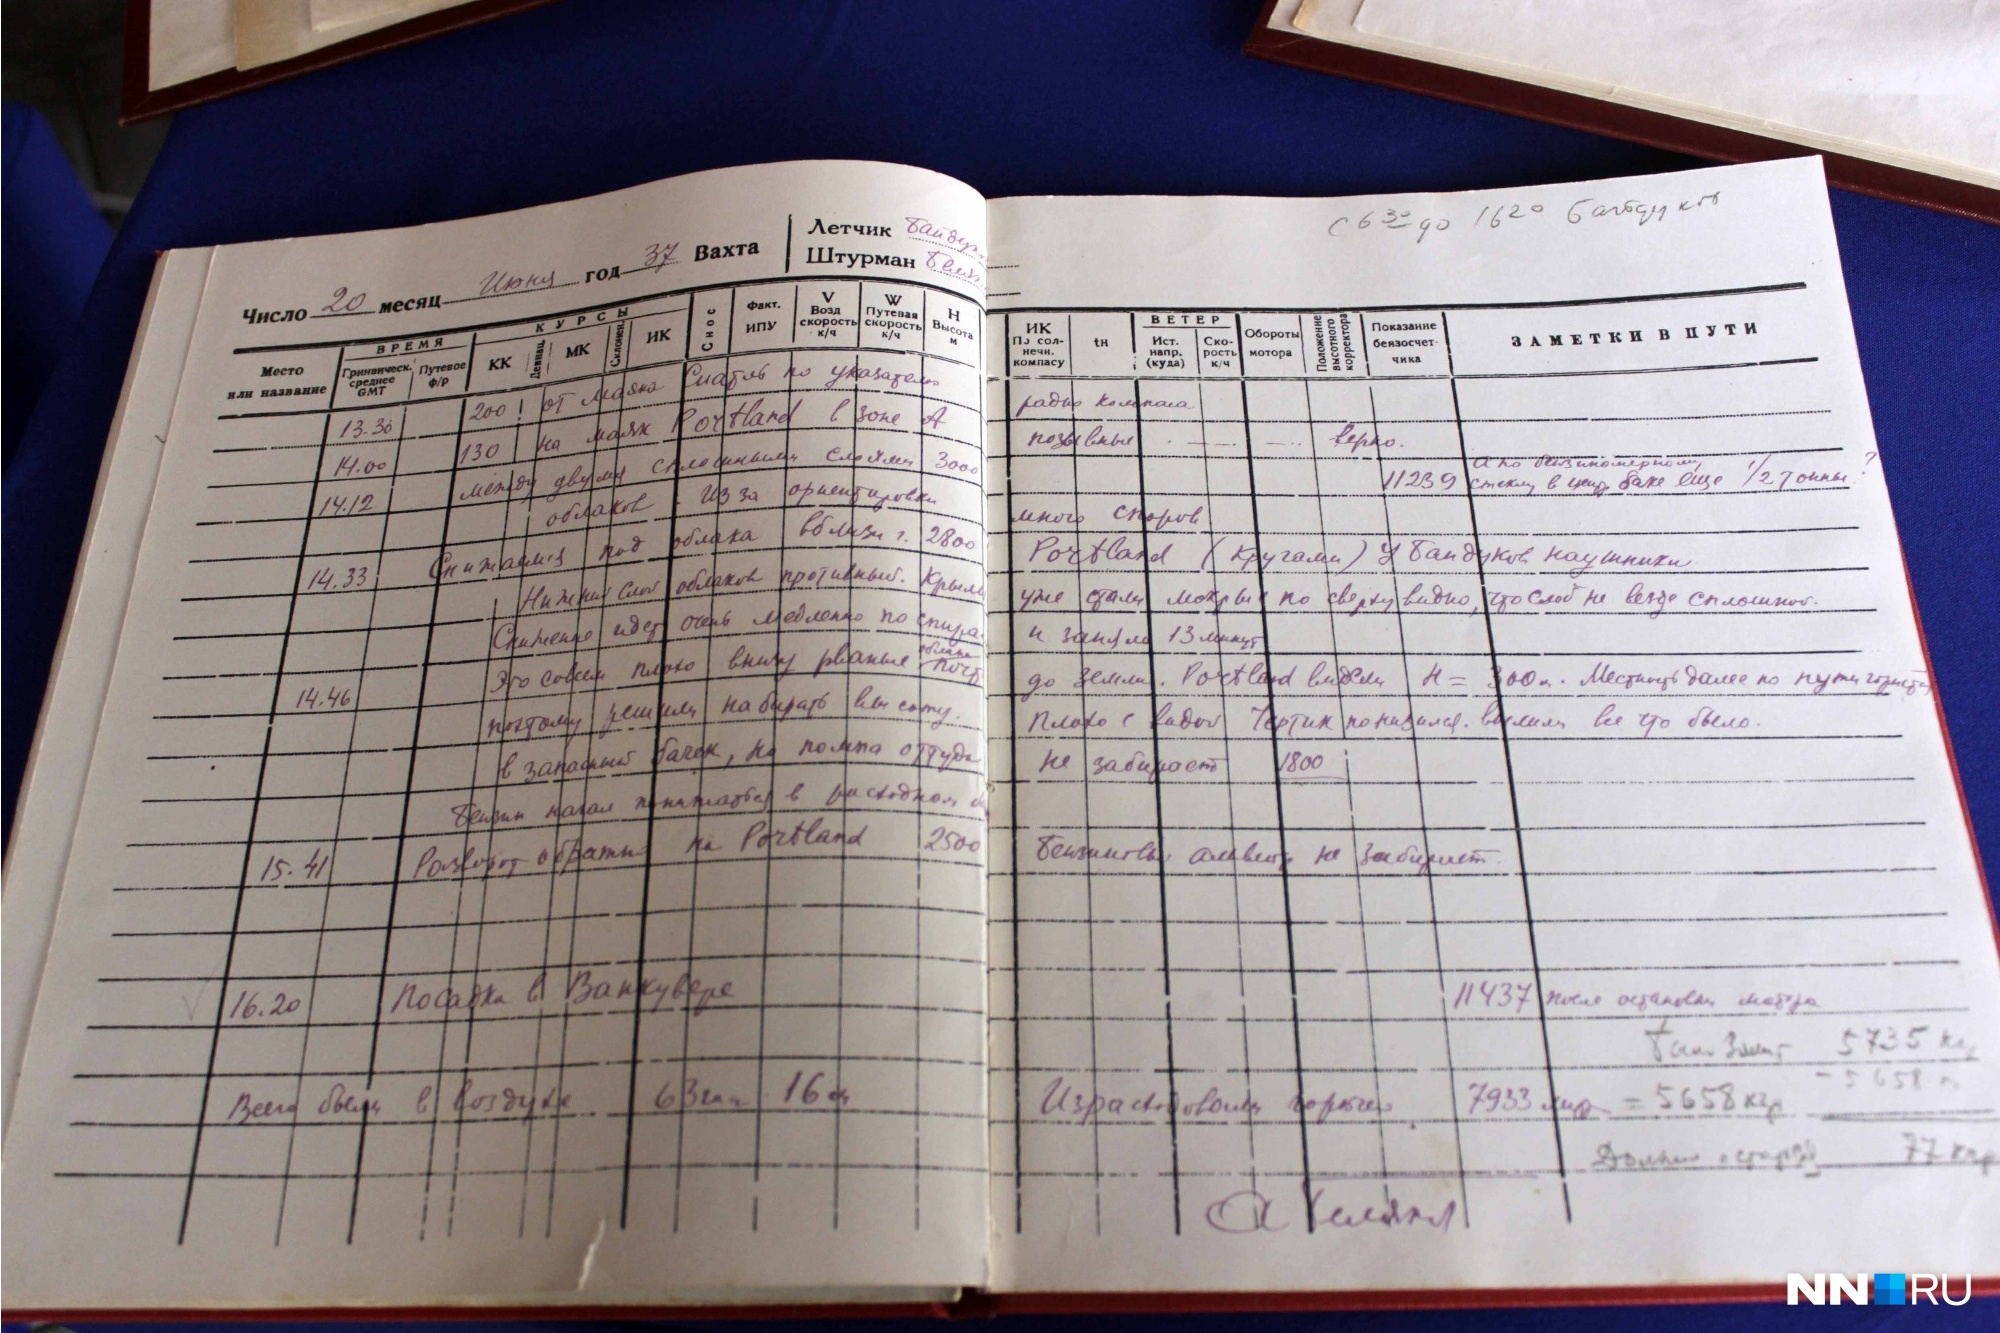 с 6 30 до 16 20 Байдуков
Число 20 месяц Июня год 37 Вахта
Летчик Байдук
Штурман Беля
Место или название
ВРЕМЯ
Гринвическ. среднее GMT
Путевое ф/р
КУРСЫ
КК
Девиац.
МК
Склонен.
ИК
Снос
Факт. ИПУ
V Возд скорость к/ч
W Путевая скорость к/ч
Н Высота м
ИК По солнечн. компасу
tн
ВЕТЕР
Ист. напр. (куда)
Скорость к/ч
Обороты мотора
Положение высотного корректора
Показание бензосчетчика
ЗАМЕТКИ В ПУТИ
13.30 200! от маяка Сиатль по указателю радио компаса
14.00 130 на маяк Portland в зоне А позывные верно.
14.12 между двумя сплошными слоями 3000 11239 а по бензиномерному
стеклу в центр. баке еще 1/2 тонны?
облаков. Из за ориентировки много споров
14.33 Снижаемся под облака вблизи г. 2800 Portland (кругами) У Байдуков наушники
Нижний слой облаков противный. Крылья уже стали мокрые по сверху видно, что слой не везде сплошной.
Снижение идет очень медленно по спира и заняло 13 минут
14.46 Это совсем плохо внизу рваные облака почт до земли. Portland видели Н = 300м. Местность далее по пути гориста
поэтому решили набирать высоту. Плохо с водой Чертик понизился. вылили все что было.
в запасный бачок, но помпа оттуда не забирает 1800
Бензин начал понижаться в расходном
15.41 Разворот обратно на Portland 2500 Бензиновый альвеер не забирает.
16.20 Посадка в Ванкувере 11437 после остановки мотора
Было 5735 кгр
Всего были в воздухе 63 час 16 м Израсходовали горючего 7933 литр = 5658 кгр
- 5658
Должно остаться 77 кгр
А Беляков
NN RU